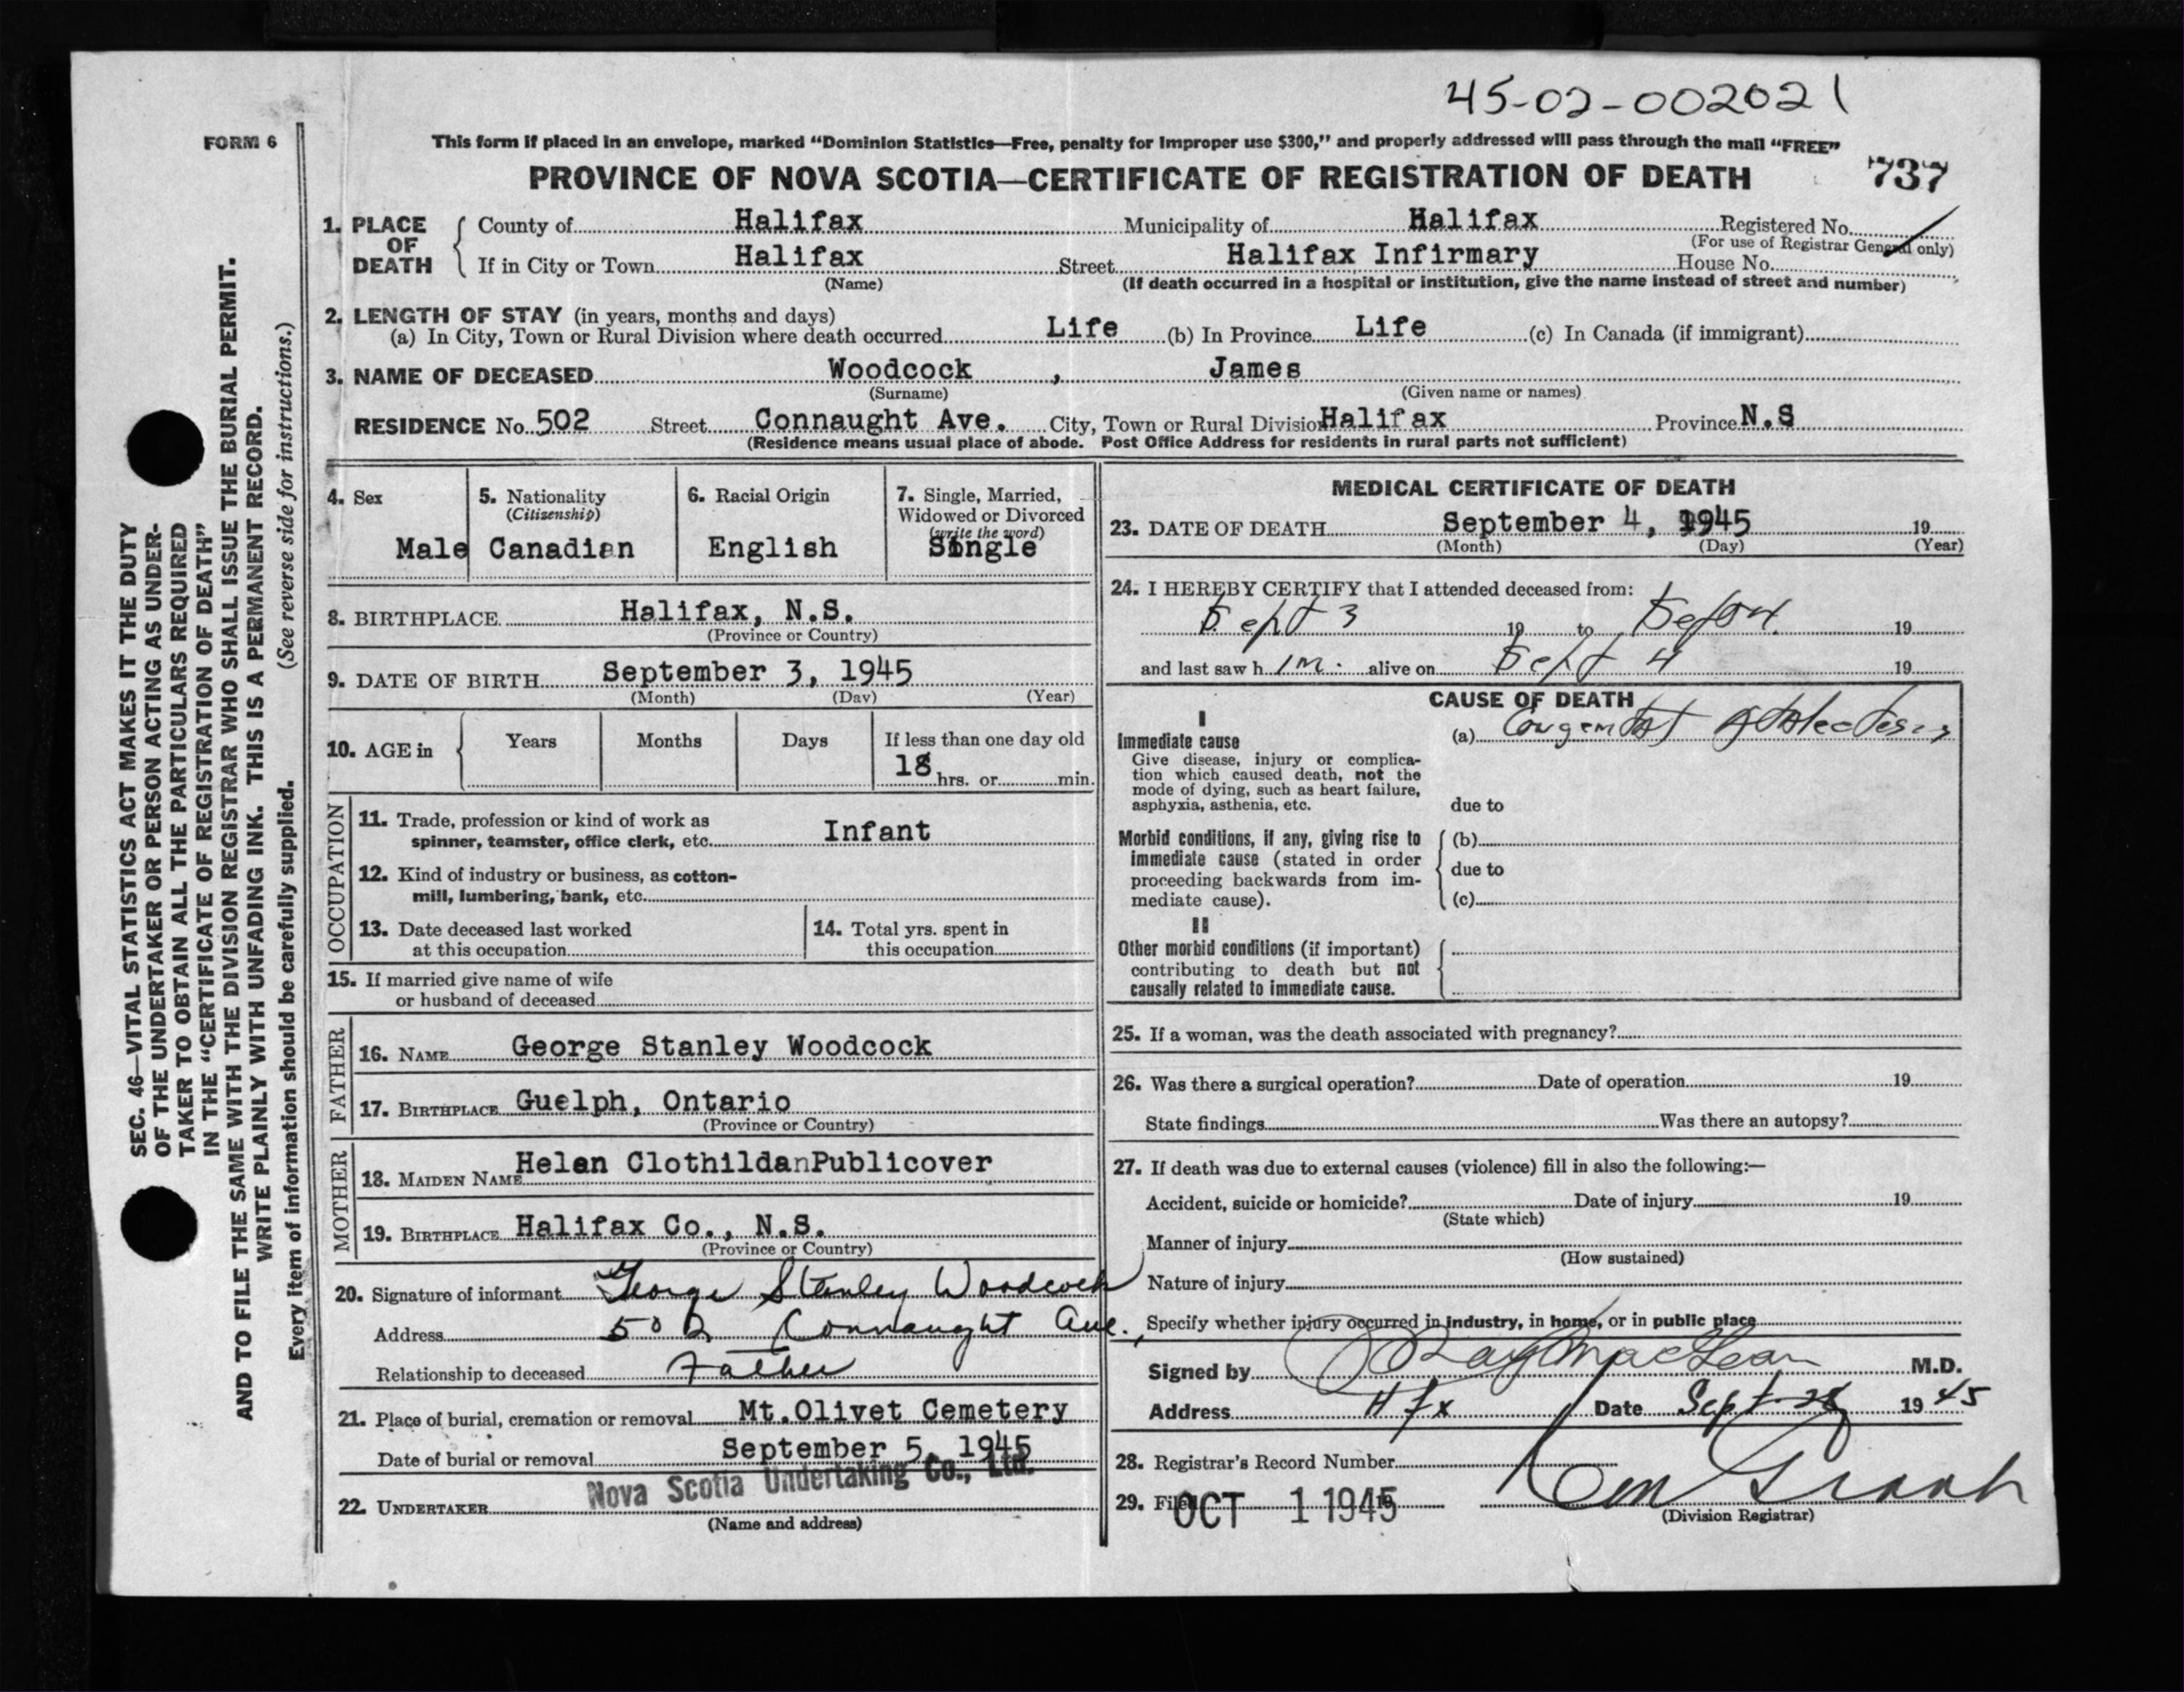 45-02-002021
FORM 6
This form if placed in an envelope, marked "Dominion Statistics—Free, penalty for improper use $300," and properly addressed will pass through the mail "FREE"
PROVINCE OF NOVA SCOTIA—CERTIFICATE OF REGISTRATION OF DEATH
737
1. PLACE OF DEATH
County of Halifax Municipality of Halifax Registered No.
(For use of Registrar General only)
If in City or Town Halifax Street Halifax Infirmary House No.
(Name) (If death occurred in a hospital or institution, give the name instead of street and number)
2. LENGTH OF STAY (in years, months and days)
(a) In City, Town or Rural Division where death occurred Life (b) In Province Life (c) In Canada (if immigrant)
3. NAME OF DECEASED Woodcock , James
(Surname) (Given name or names)
RESIDENCE No. 502 Street Connaught Ave. City, Town or Rural Division Halifax Province N.S
(Residence means usual place of abode. Post Office Address for residents in rural parts not sufficient)
4. Sex
Male
5. Nationality
(Citizenship)
Canadian
6. Racial Origin
English
7. Single, Married,
Widowed or Divorced
(write the word)
Single
8. BIRTHPLACE Halifax, N.S.
(Province or Country)
9. DATE OF BIRTH September 3, 1945
(Month) (Day) (Year)
10. AGE in
Years Months Days If less than one day old
18 hrs. or min.
OCCUPATION
11. Trade, profession or kind of work as
spinner, teamster, office clerk, etc. Infant
12. Kind of industry or business, as cotton-
mill, lumbering, bank, etc.
13. Date deceased last worked
at this occupation
14. Total yrs. spent in
this occupation
15. If married give name of wife
or husband of deceased
FATHER
16. NAME George Stanley Woodcock
17. BIRTHPLACE Guelph, Ontario
(Province or Country)
MOTHER
18. MAIDEN NAME Helen ClothildanPublicover
19. BIRTHPLACE Halifax Co., N.S.
(Province or Country)
20. Signature of informant George Stanley Woodcock
Address 502 Connaught Ave.
Relationship to deceased Father
21. Place of burial, cremation or removal Mt.Olivet Cemetery
Date of burial or removal September 5, 1945
Nova Scotia Undertaking Co., Ltd.
22. UNDERTAKER
(Name and address)
MEDICAL CERTIFICATE OF DEATH
23. DATE OF DEATH September 4, 1945 19
(Month) (Day) (Year)
24. I HEREBY CERTIFY that I attended deceased from:
Sept 3 19 to Sept 4. 19
and last saw h im. alive on Sept 4 19
CAUSE OF DEATH
I
Immediate cause
(a) Congenital Atelectasis
Give disease, injury or complica-
tion which caused death, not the
mode of dying, such as heart failure,
asphyxia, asthenia, etc.
due to
Morbid conditions, if any, giving rise to
immediate cause (stated in order
proceeding backwards from im-
mediate cause).
(b)
due to
(c)
II
Other morbid conditions (if important)
contributing to death but not
causally related to immediate cause.
25. If a woman, was the death associated with pregnancy?
26. Was there a surgical operation? Date of operation 19
State findings Was there an autopsy?
27. If death was due to external causes (violence) fill in also the following:—
Accident, suicide or homicide? Date of injury 19
(State which)
Manner of injury
(How sustained)
Nature of injury
Specify whether injury occurred in industry, in home, or in public place
Signed by MacLean M.D.
Address Hfx Date Sept 28 1945
28. Registrar's Record Number
29. Filed OCT 1 1945
(Division Registrar)
SEC. 46—VITAL STATISTICS ACT MAKES IT THE DUTY
OF THE UNDERTAKER OR PERSON ACTING AS UNDER-
TAKER TO OBTAIN ALL THE PARTICULARS REQUIRED
IN THE "CERTIFICATE OF REGISTRATION OF DEATH"
AND TO FILE THE SAME WITH THE DIVISION REGISTRAR WHO SHALL ISSUE THE BURIAL PERMIT.
WRITE PLAINLY WITH UNFADING INK. THIS IS A PERMANENT RECORD.
Every item of information should be carefully supplied. (See reverse side for instructions.)